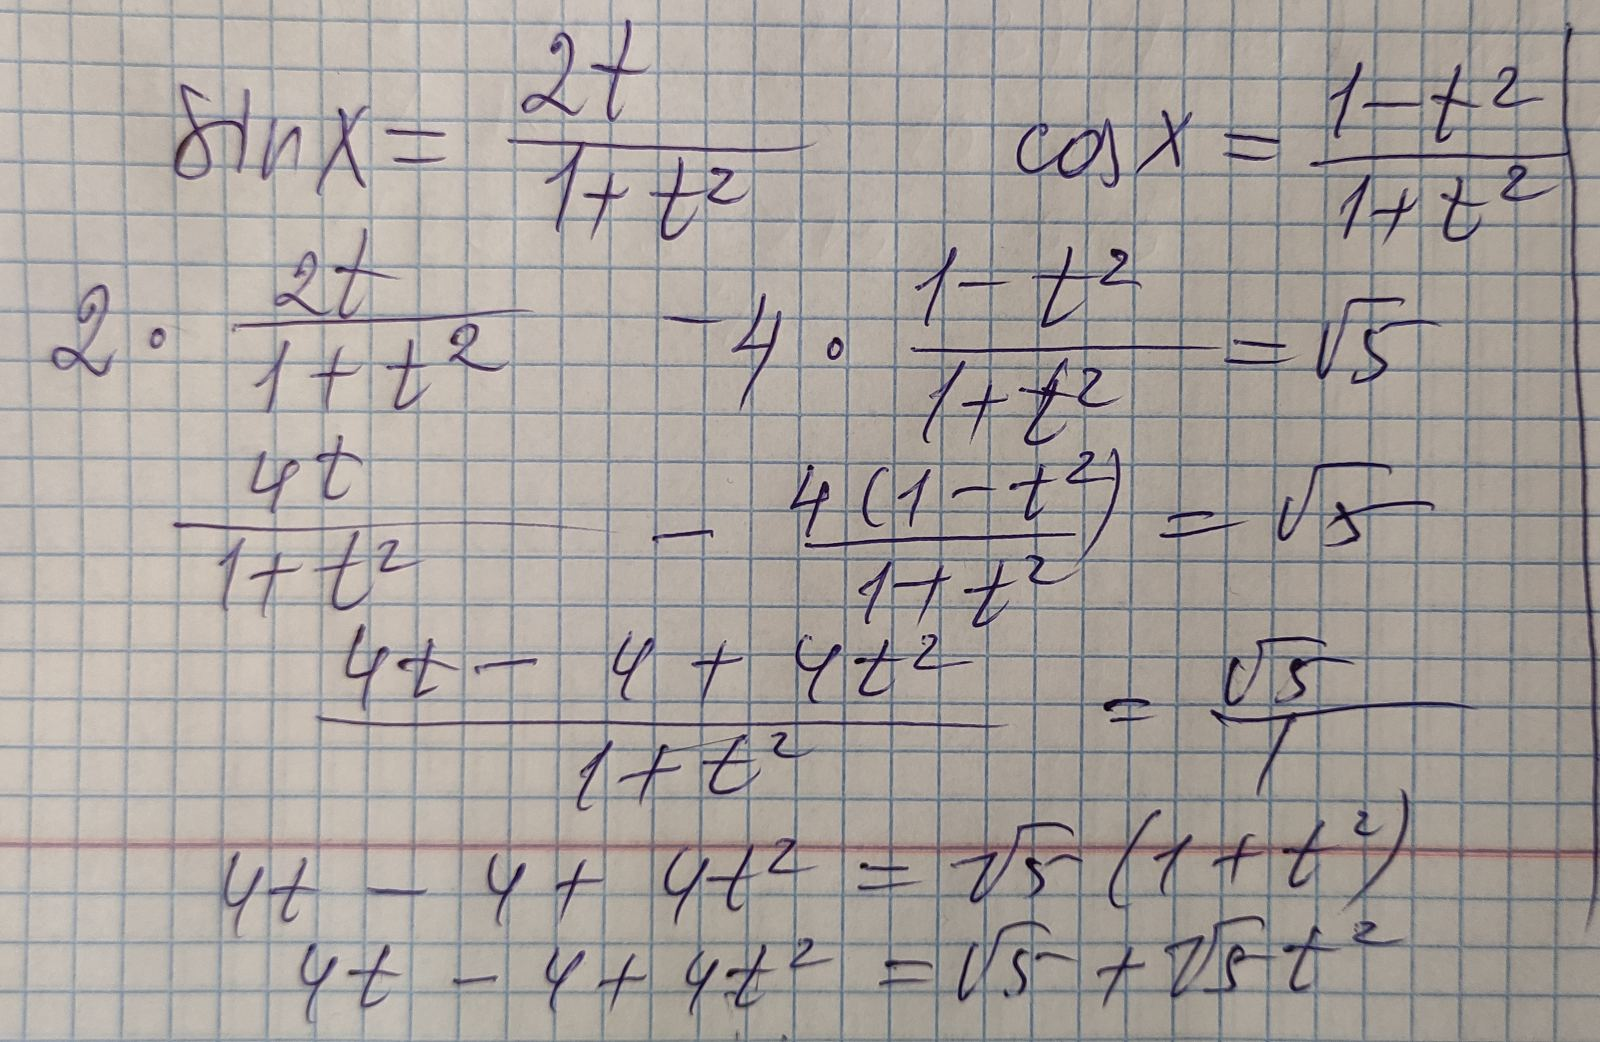 sin x = 2t/(1+t²)   cos x = (1-t²)/(1+t²)
2 · 2t/(1+t²) - 4 · (1-t²)/(1+t²) = √5
4t/(1+t²) - 4(1-t²)/(1+t²) = √5
(4t - 4 + 4t²)/(1+t²) = √5/1
4t - 4 + 4t² = √5 (1+t²)
4t - 4 + 4t² = √5 + √5 t²